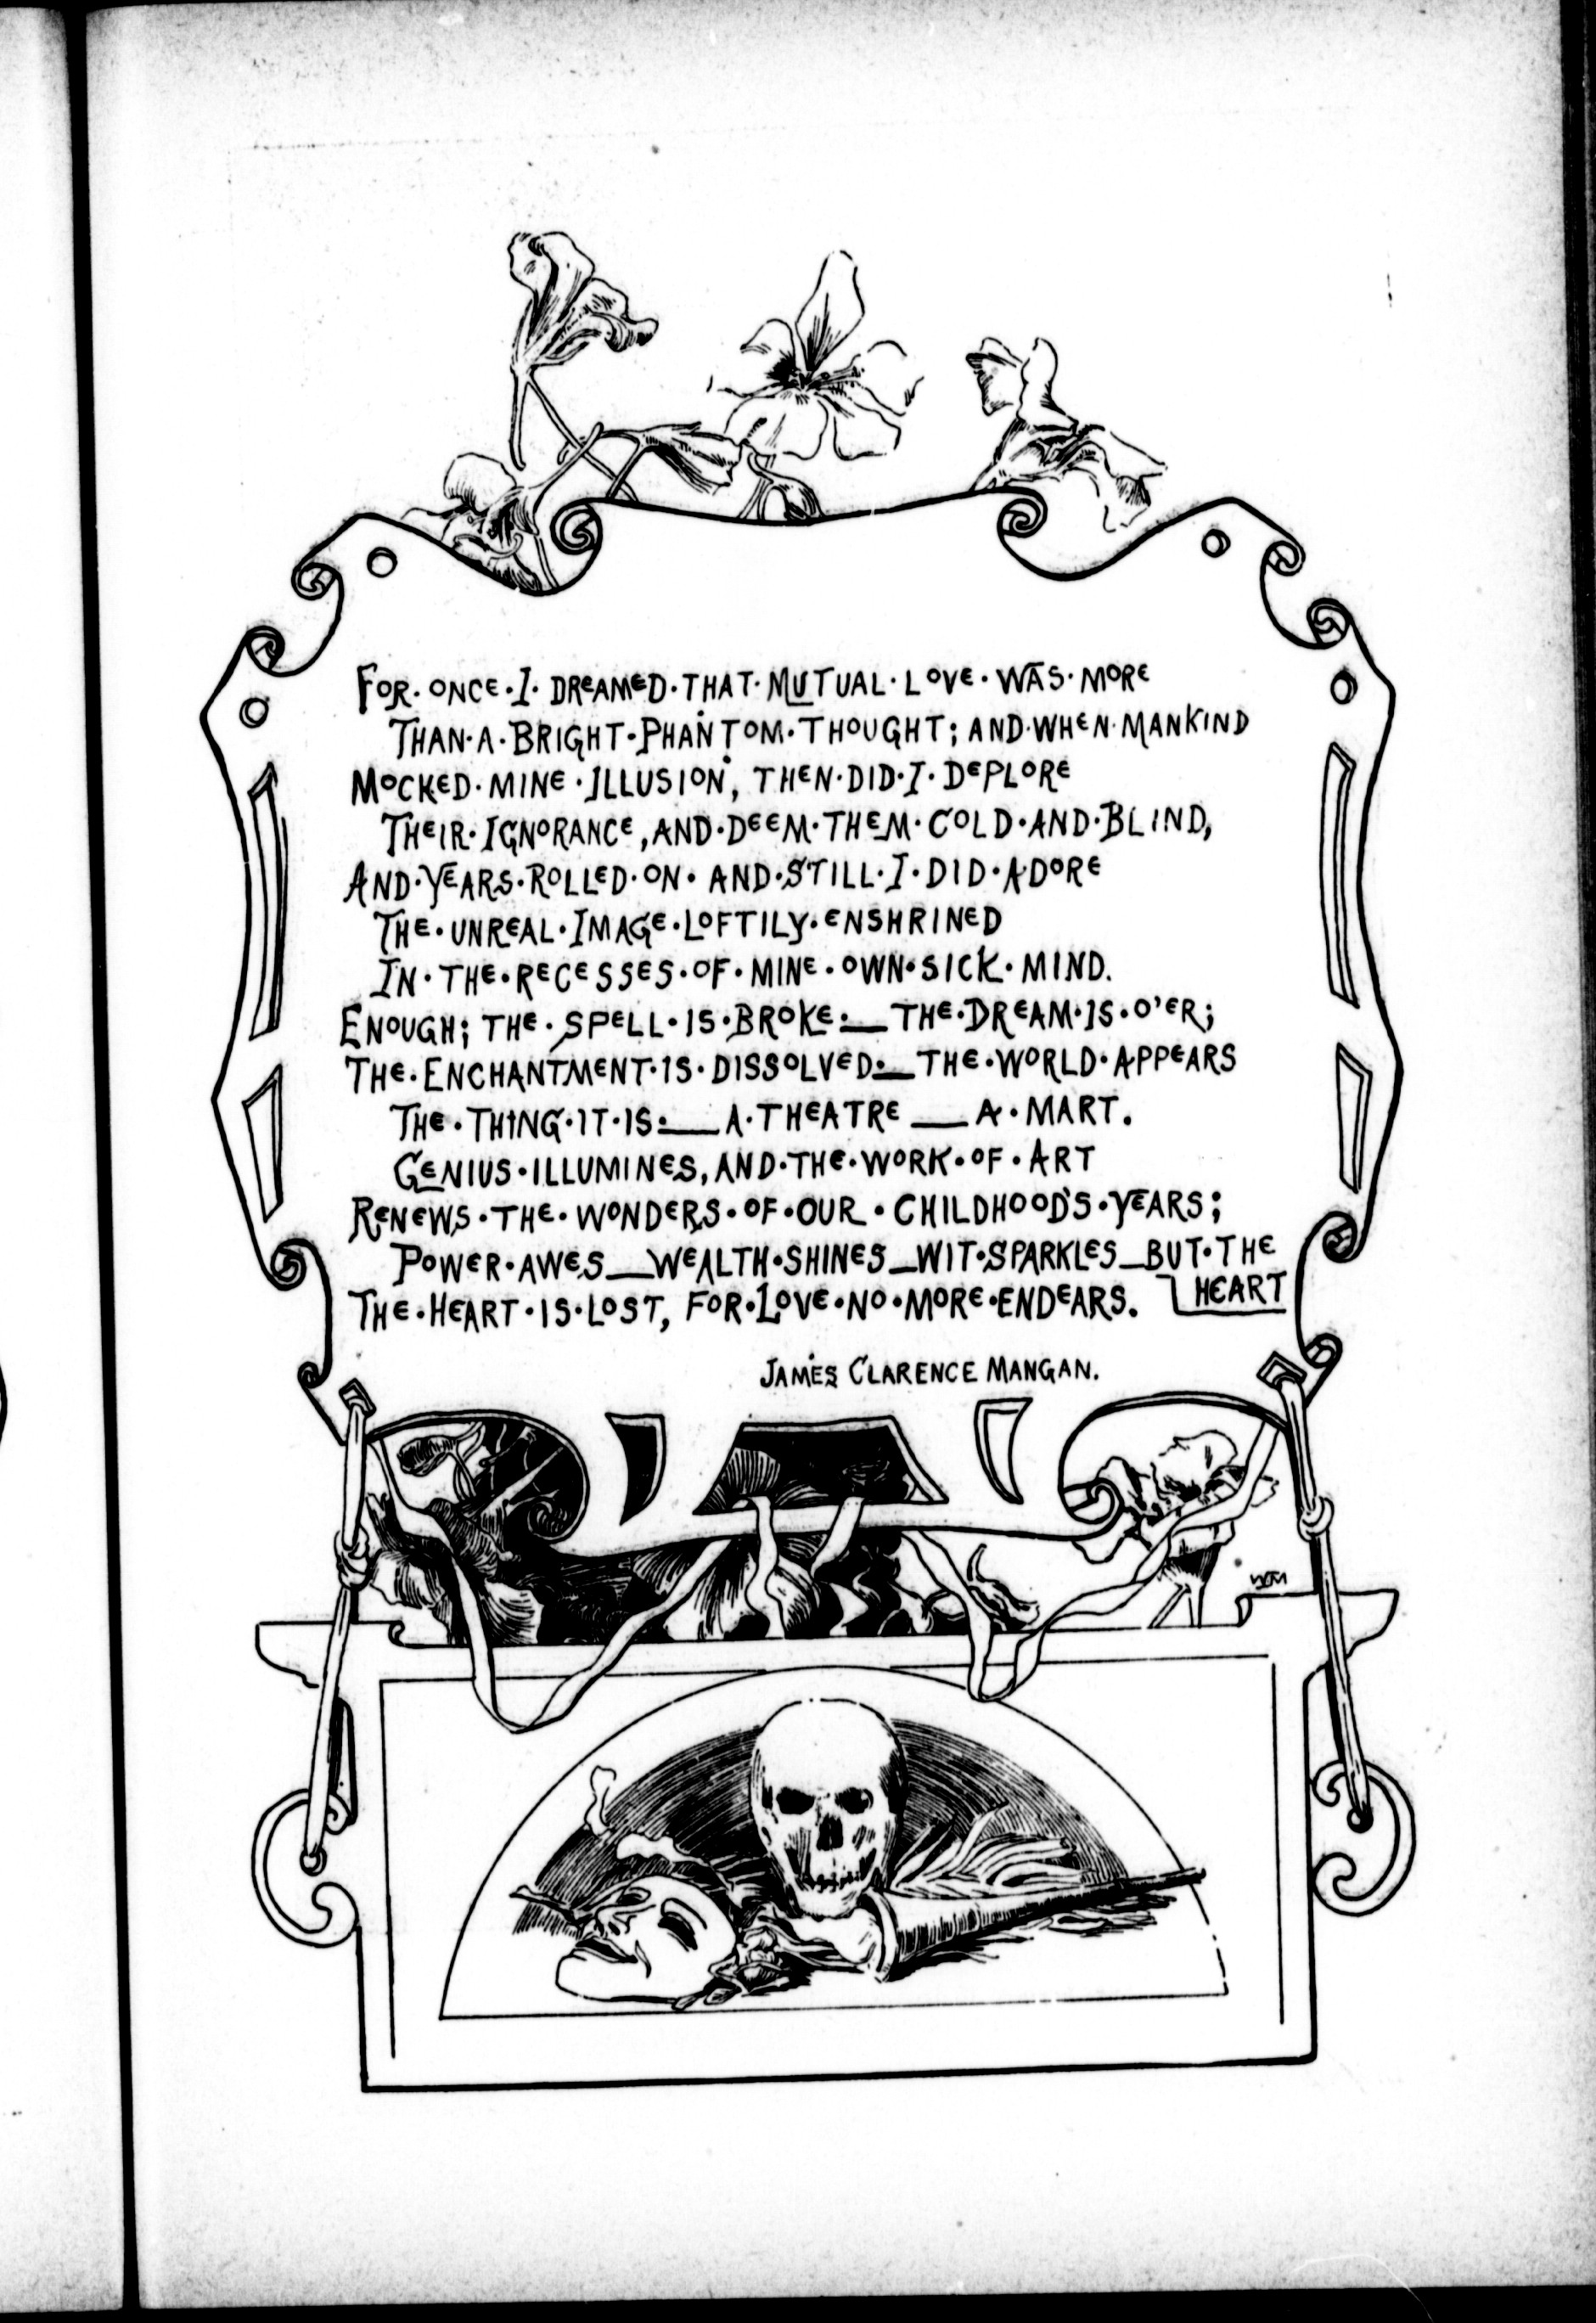 FOR·ONCE·I·DREAMED·THAT·MUTUAL·LOVE·WAS·MORE
THAN·A·BRIGHT·PHANTOM·THOUGHT; AND·WHEN·MANKIND
MOCKED·MINE·ILLUSION, THEN·DID·I·DEPLORE
THEIR·IGNORANCE, AND·DEEM·THEM·COLD·AND·BLIND,
AND·YEARS·ROLLED·ON·AND·STILL·I·DID·ADORE
THE·UNREAL·IMAGE·LOFTILY·ENSHRINED
IN·THE·RECESSES·OF·MINE·OWN·SICK·MIND.
ENOUGH; THE·SPELL·IS·BROKE:—THE·DREAM·IS·O'ER;
THE·ENCHANTMENT·IS·DISSOLVED:—THE·WORLD·APPEARS
THE·THING·IT·IS:—A·THEATRE—A·MART.
GENIUS·ILLUMINES, AND·THE·WORK·OF·ART
RENEWS·THE·WONDERS·OF·OUR·CHILDHOOD'S·YEARS;
POWER·AWES—WEALTH·SHINES—WIT·SPARKLES—BUT·THE
HEART
THE·HEART·IS·LOST, FOR·LOVE·NO·MORE·ENDEARS.
JAMES CLARENCE MANGAN.